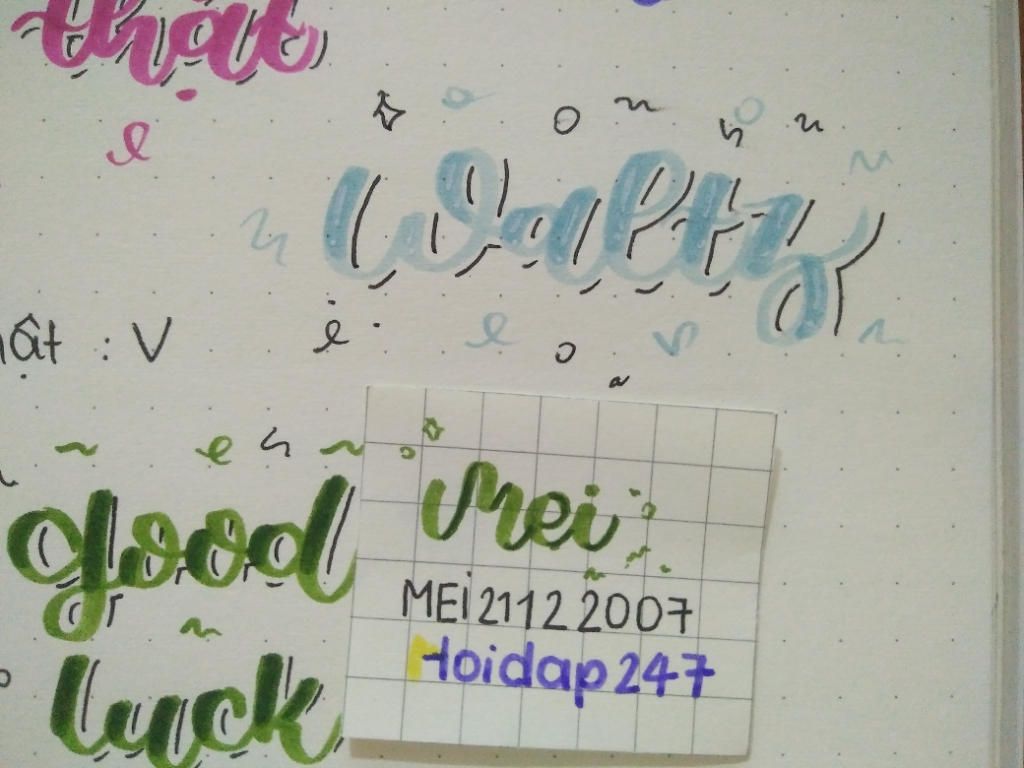 thật
Waltz
: V
good
luck
Mei
MEi 2112 2007
Hoidap247